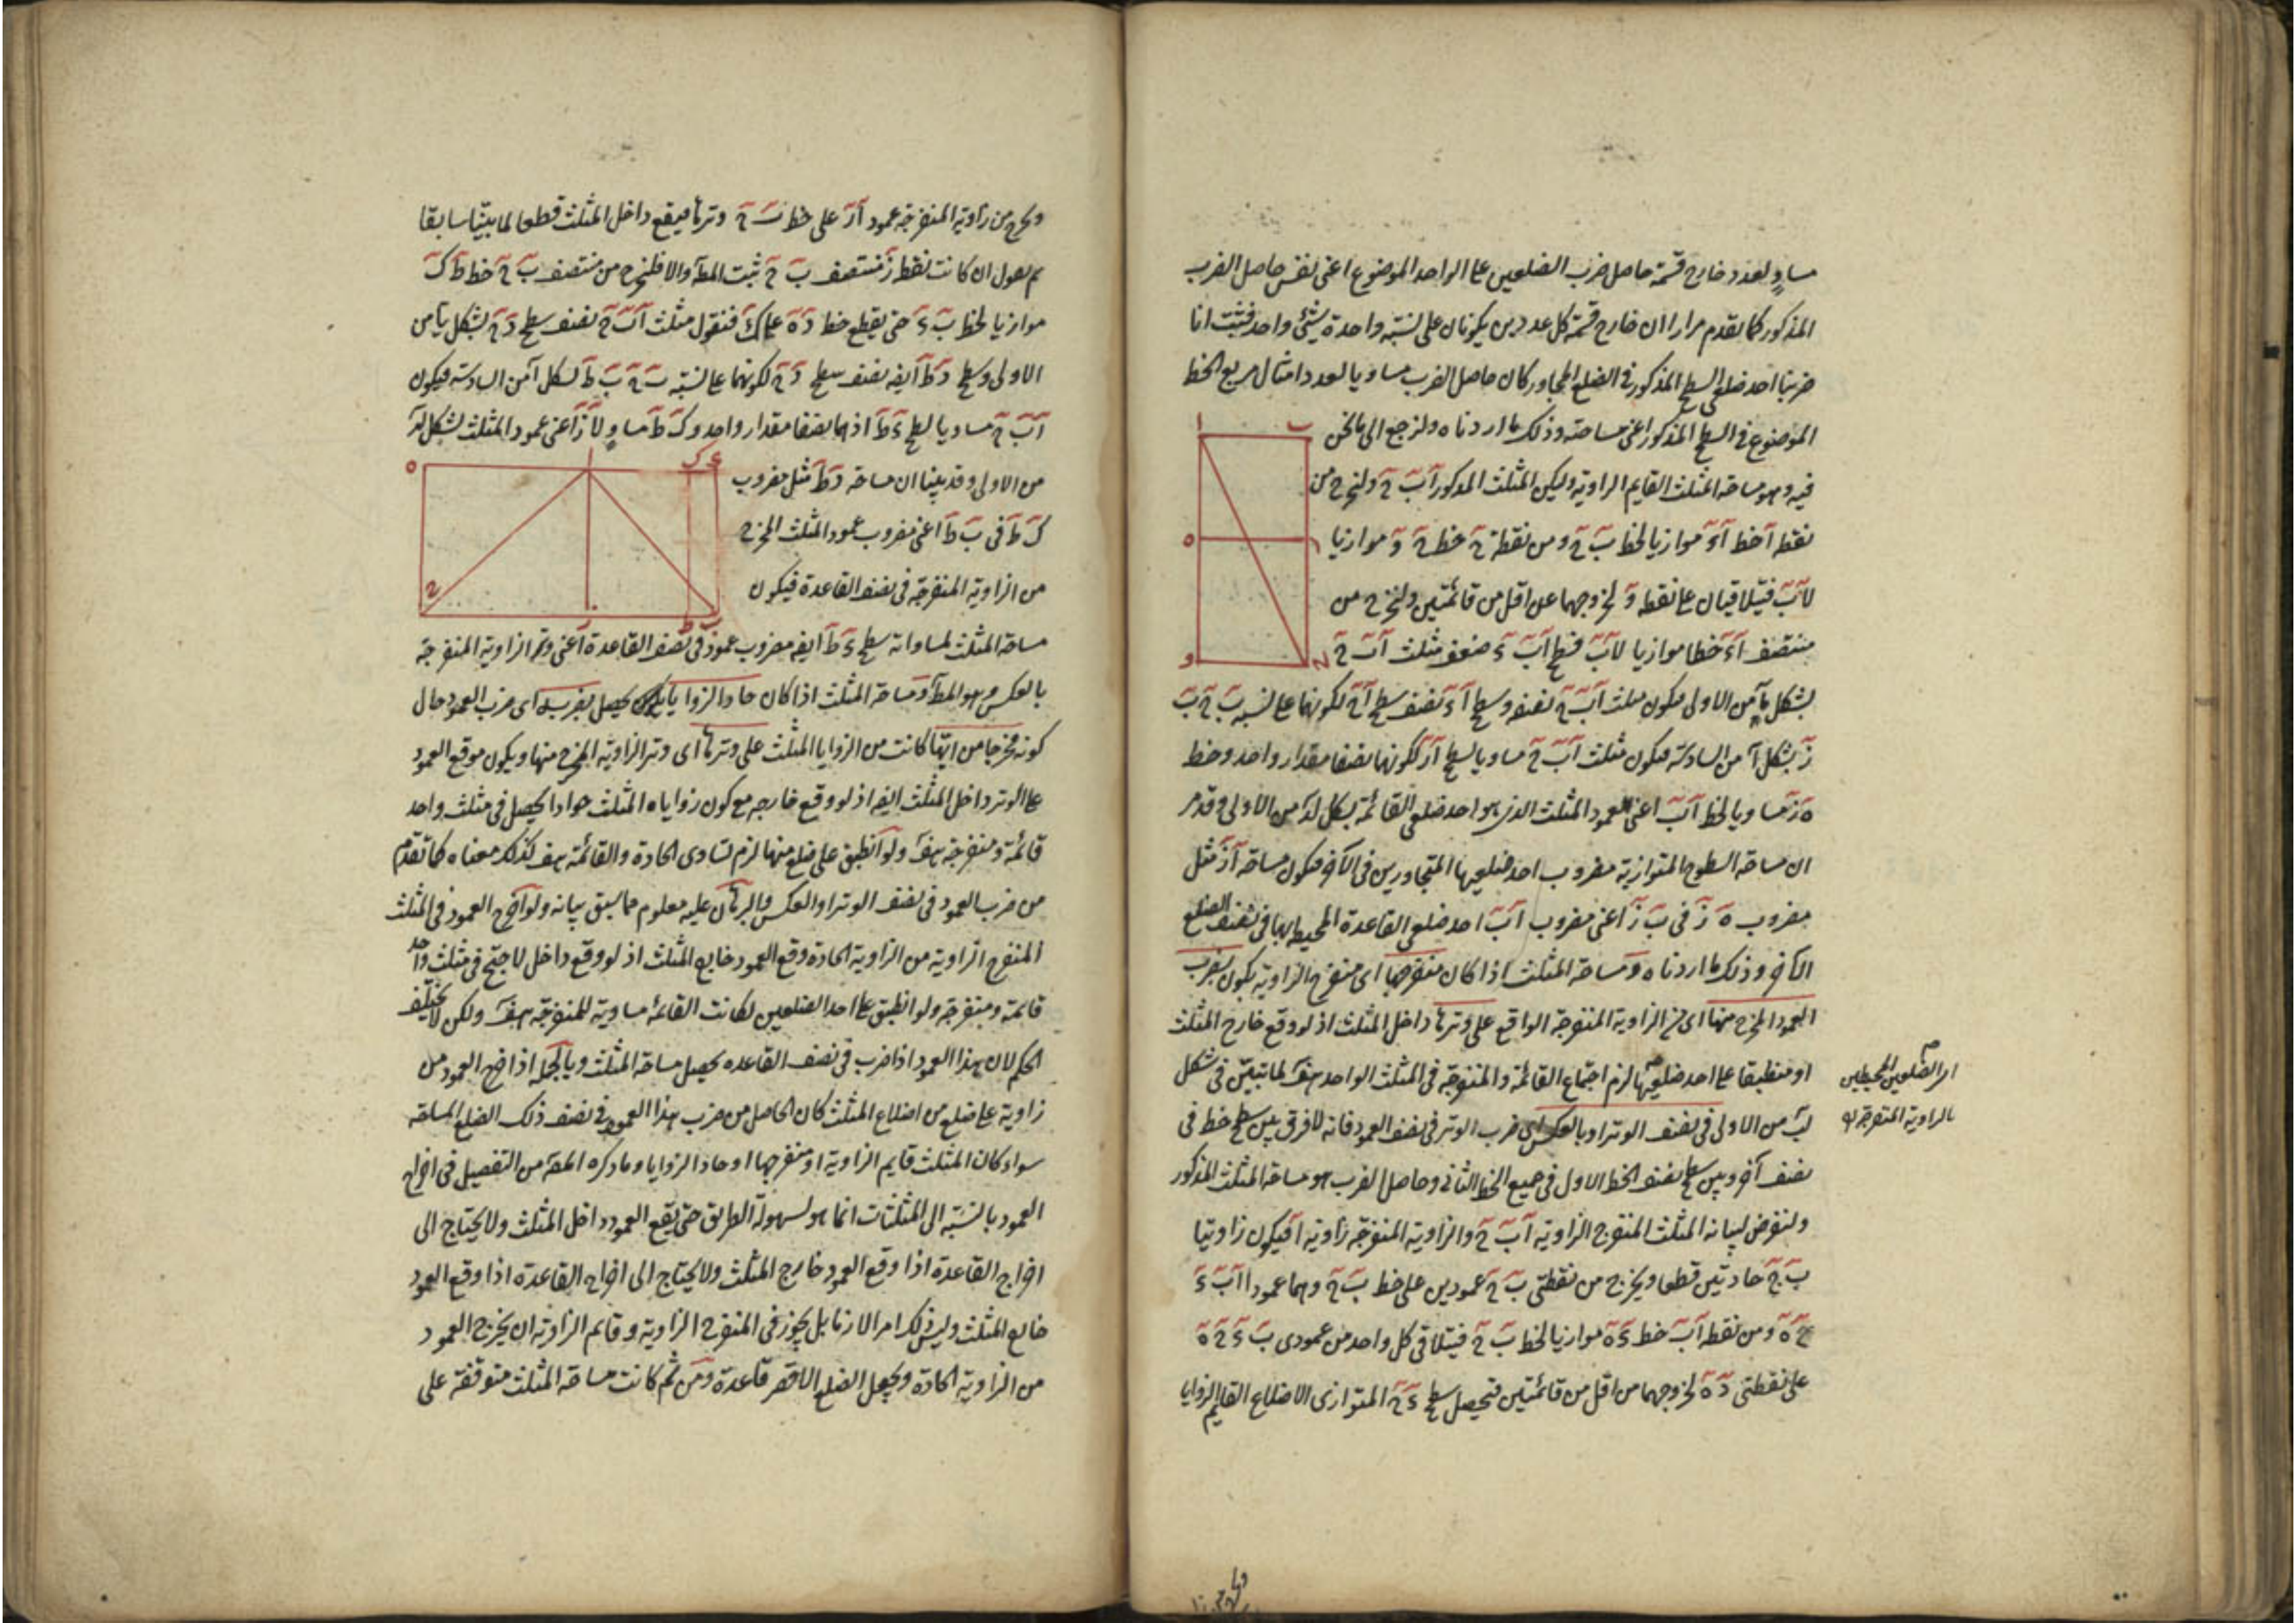 مساوٍ لعدد خارج قسمة حاصل ضرب الضلعين على الواحد الموضوع اعنى نفس حاصل الضرب
المذكور كما تقدم مرارا ان خارج قسمة كل عددين يكونان على نسبة واحدة شئ واحد فثبت انا
ضربنا احد ضلعى السطح المذكور فى الضلع المجاور كان حاصل الضرب مساويا لعدد امثال مربع الخط
الموضوع فى السطح المذكور اعنى مساحته وذلك ما اردناه ولنرجع الى ما نحن
فيه وهو مساحة المثلث القايم الزاوية وليكن المثلث المذكور آب ح ولنخرج من
نقطه آ خط آ و موازيا لخط ب ح ومن نقطة ح خط ح و موازيا
لآب فيتلاقيان على نقطه و لخروجهما عن اقل من قائمتين ولنخرج من
منتصف آ و خطا موازيا لآب فسطح آب و ضعف مثلث آب ح
بشكل مآ من الاولى فيكون مثلث آب ح نصفه وسطح آ ء نصف سطح آ ح لكونهما على نسبه ب ح ب
ز بشكل آ من السادسة فيكون مثلث آب ح مساويا لسطح آز لكونهما نصفا مقدار واحد وخط
ه ز مساويا لخط آب اعنى العمود المثلث الذى هو احد ضلعى القائمة بشكل لد من الاولى وقد مر
ان مساحة السطوح المتوازية مضروب احد ضلعيها المتجاورين فى الآخر فيكون مساحة آز مثل
مضروب ه ز فى ب ز اعنى مضروب آب احد ضلعى القاعدة المحيط بها فى نصف الضلع
الآخر وذلك ما اردناه ومساحة المثلث اذا كان منفرجها اى منفرج الزاوية يكون بضرب
العمود المخرج منها اى من الزاوية المنفرجة الواقع على وترها داخل المثلث اذ لو وقع خارج المثلث
او منطبقا على احد ضلعيها لزم اجتماع القائمة والمنفرجه فى المثلث الواحد هف لما تبين فى شكل
اى الضلعين المحيطين
بالزاوية المنفرجة
لب من الاولى فى نصف الوتر او بالعكس اى ضرب الوتر فى نصف العمود فانه لا فرق بين سطح خط فى
نصف آخر وبين سطح نصف الخط الاول فى جميع الخط الثانى وحاصل الضرب هو مساحة المثلث المذكور
ولنفرض لبيانه المثلث المنفرج الزاوية آب ح والزاوية المنفرجة زاوية آ فيكون زاويتا
ب ح حادتين قطعا ويخرج من نقطتى ب ح عمودين على خط ب ح وهما عمودا آب ء
ح ه ومن نقطه آ خط ء ه موازيا لخط ب ح فيتلاقى كل واحد من عمودى ب ء ح ه
على نقطتى ء ه لخروجهما من اقل من قائمتين فيحصل سطح ء ح المتوازى الاضلاع القايم الزوايا
ويخرج من زاوية المنفرجة عمود آز على خط ب ح وترها فيقع داخل المثلث قطعا لما بيّنا سابقا
ثم نقول ان كانت نقطه ز منتصف ب ح ثبت المط والا فلنخرج من منتصف ب ح خط ط ك
موازيا لخط ب ء حتى يقطع خط ء ه على ك فنقول مثلث آب ح نصف سطح ء ح بشكل مآ من
الاولى وسطح ء ط ايضه نصف سطح ء ح لكونهما على نسبه ب ح ب ط لشكل آ من السادسة فيكون
آب ح مساويا لسطح ء ط اذ هما نصفا مقدار واحد وك ط مساوٍ لآز اعنى عمود المثلث لشكل لد
من الاولى وقد بينا ان مساحة ء ط مثل مضروب
ك ط فى ب ط اعنى مضروب عمود المثلث المخرج
من الزاوية المنفرجة فى نصف القاعدة فيكون
مساحة المثلث لمساواته سطح ء ط ايضه مضروب عموده فى نصف القاعدة اعنى وتر الزاوية المنفرجة
بالعكس وهو المط ومساحة المثلث اذا كان حاد الزوايا يحصل بضربه اى ضرب العمود حال
كونه مخرجا من ايتها كانت من الزوايا المثلث على وترها اى وتر الزاوية المخرج منها ويكون موقع العمود
على الوتر داخل المثلث ايضه اذ لو وقع خارجه مع كون زواياه المثلث حوادا يحصل فى مثلث واحد
قائمة ومنفرجة هف ولو انطبق على ضلع منها لزم تساوى الحادة والقائمة هف كذلك معناه كما تقدم
من ضرب العمود فى نصف الوتر او العكس والبرهان عليه معلوم مما سبق بيانه ولو اخرج العمود فى المثلث
المنفرج الزاوية من الزاوية الحادة وقع العمود خارج المثلث اذ لو وقع داخل لاجتمع فى مثلث واحد
قائمة ومنفرجة ولو انطبق على احد الضلعين لكانت القائمة مساوية للمنفرجة هف ولكن لا يختلف
الحكم لان هذا العمود اذا ضرب فى نصف القاعده يحصل مساحة المثلث وبالجملة اذا خرج العمود من
زاوية على ضلع من اضلاع المثلث كان الحاصل من ضرب هذا العمود فى نصف ذلك الضلع المساحة
سواء كان المثلث قايم الزاوية او منفرجها او حاد الزوايا وما ذكره المص من التفصيل فى اخراج
العمود بالنسبة الى المثلثات انما هو لسهولة الطريق حتى يقع العمود داخل المثلث ولا يحتاج الى
اخراج القاعدة اذا وقع العمود خارج المثلث ولا يحتاج الى اخراج القاعدة اذا وقع العمود
خارج المثلث وليس ذلك امرا لازما بل يجوز فى المنفرج الزاوية وقايم الزاوية ان يخرج العمود
من الزاوية الحادة ويجعل الضلع الاقصر قاعدة ومن ثم كانت مساحة المثلث متوقفة على